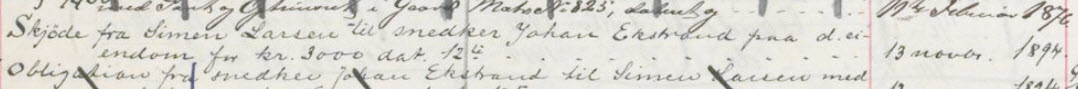 med Pant og i Gaard Mats No 825, datert og 11te Februar 1876
Skjöde fra Simen Larsen til snedker Johan Ekstrand paa d. ei-
endom for kr. 3000 dat. 12te 13 novbr. 1894.
Obligation fra snedker Johan Ekstrand til Simen Larsen med
1894